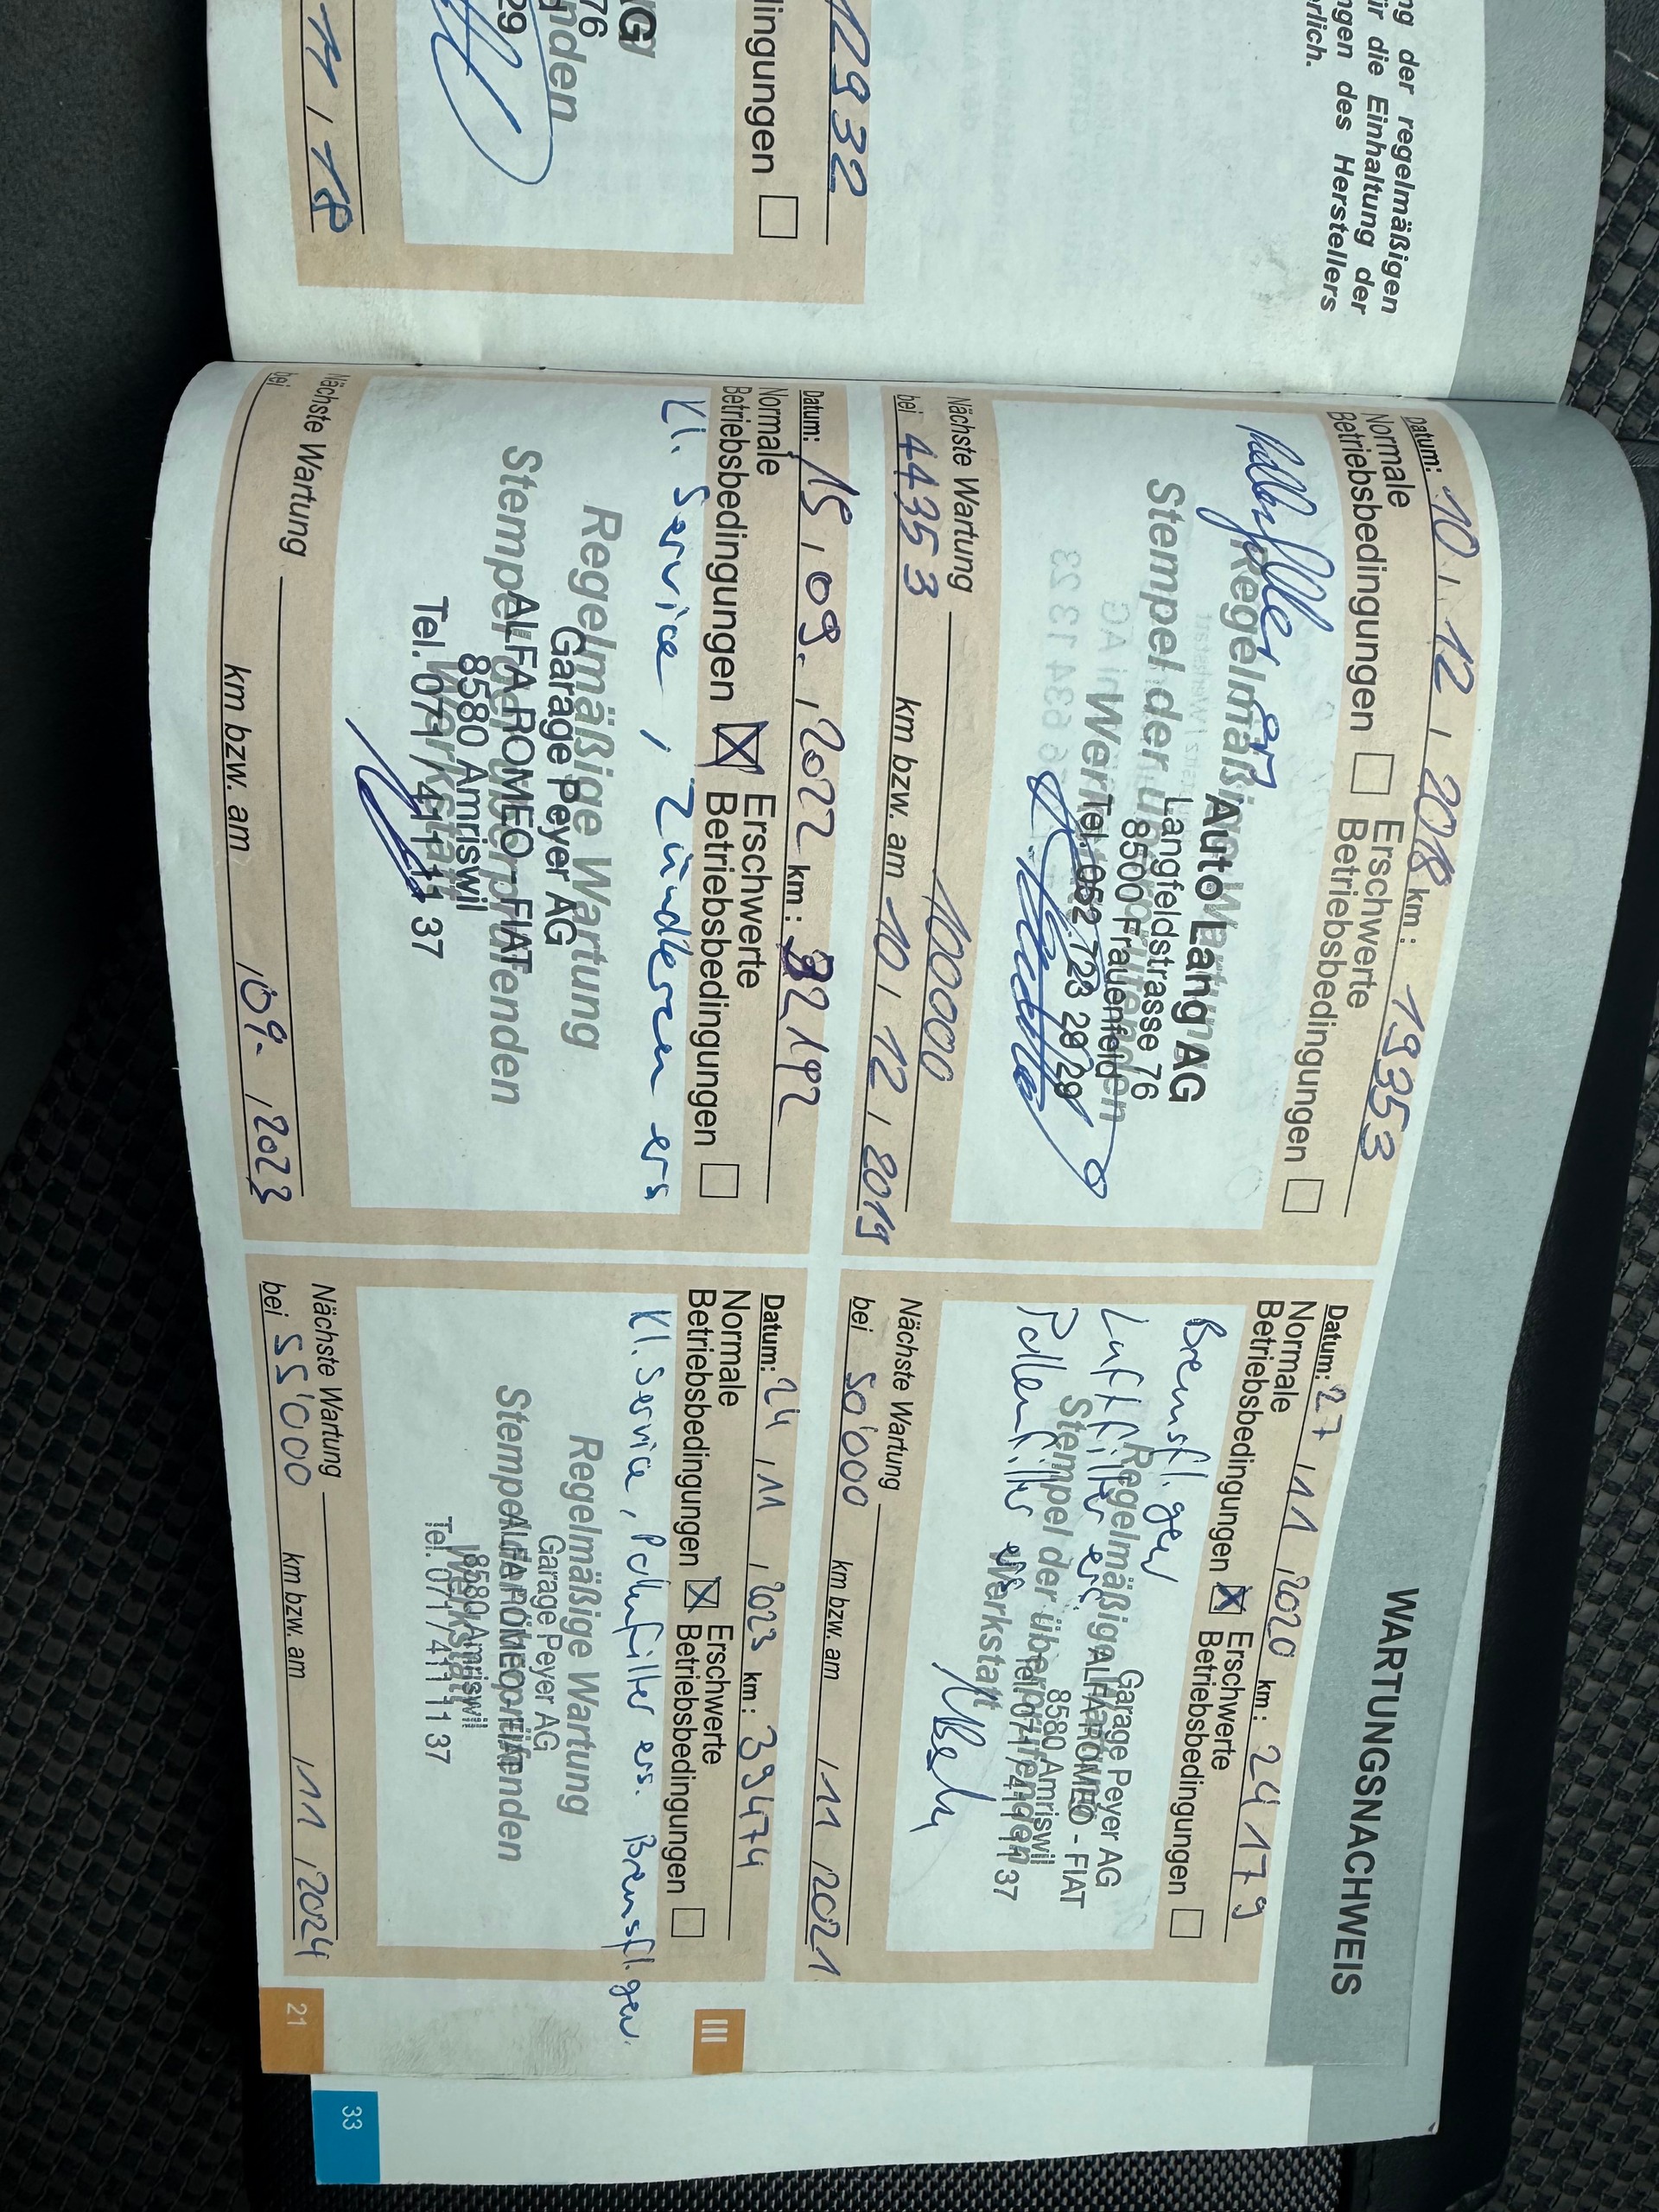 ng der regelmäßigen
ür die Einhaltung der
ngen des Herstellers
rlich.
12932
lingungen
AG
76
nden
29
11 / 18
WARTUNGSNACHWEIS
Datum: 10 / 12 / 2018 km: 19353
Normale Betriebsbedingungen
Erschwerte Betriebsbedingungen
Regelmäßige Wartung
Stempel der überprüfenden
Werkstatt
Auto Lang AG
Langfeldstrasse 76
8500 Frauenfeld
Tel. 052 723 28 29
Nächste Wartung 100000
bei 44353 km bzw. am 10 / 12 / 2019
Datum: 27 / 11 / 2020 km: 24179
Normale Betriebsbedingungen
Erschwerte Betriebsbedingungen
Bremsfl. gew
Luftfilter ers.
Pollenfilter ers
Regelmäßige Wartung
Stempel der überprüfenden
Werkstatt
Garage Peyer AG
ALFA ROMEO - FIAT
8580 Amriswil
Tel. 071 / 411 11 37
Nächste Wartung
bei 50'000 km bzw. am / 11 / 2021
Datum: 15 / 09. / 2022 km: 32192
Normale Betriebsbedingungen
Erschwerte Betriebsbedingungen
Kl. Service, Zündkerzen ers
Regelmäßige Wartung
Stempel der überprüfenden
Werkstatt
Garage Peyer AG
ALFA ROMEO - FIAT
8580 Amriswil
Tel. 071 / 411 11 37
Nächste Wartung
bei km bzw. am / 09. / 2023
Datum: 24 / 11 / 2023 km: 39474
Normale Betriebsbedingungen
Erschwerte Betriebsbedingungen
Kl. Service, Pollenfilter ers. Bremsfl. gew.
Regelmäßige Wartung
Stempel der überprüfenden
Werkstatt
Garage Peyer AG
ALFA ROMEO - FIAT
8580 Amriswil
Tel. 071 / 411 11 37
Nächste Wartung
bei 55'000 km bzw. am / 11 / 2024
III
21
33